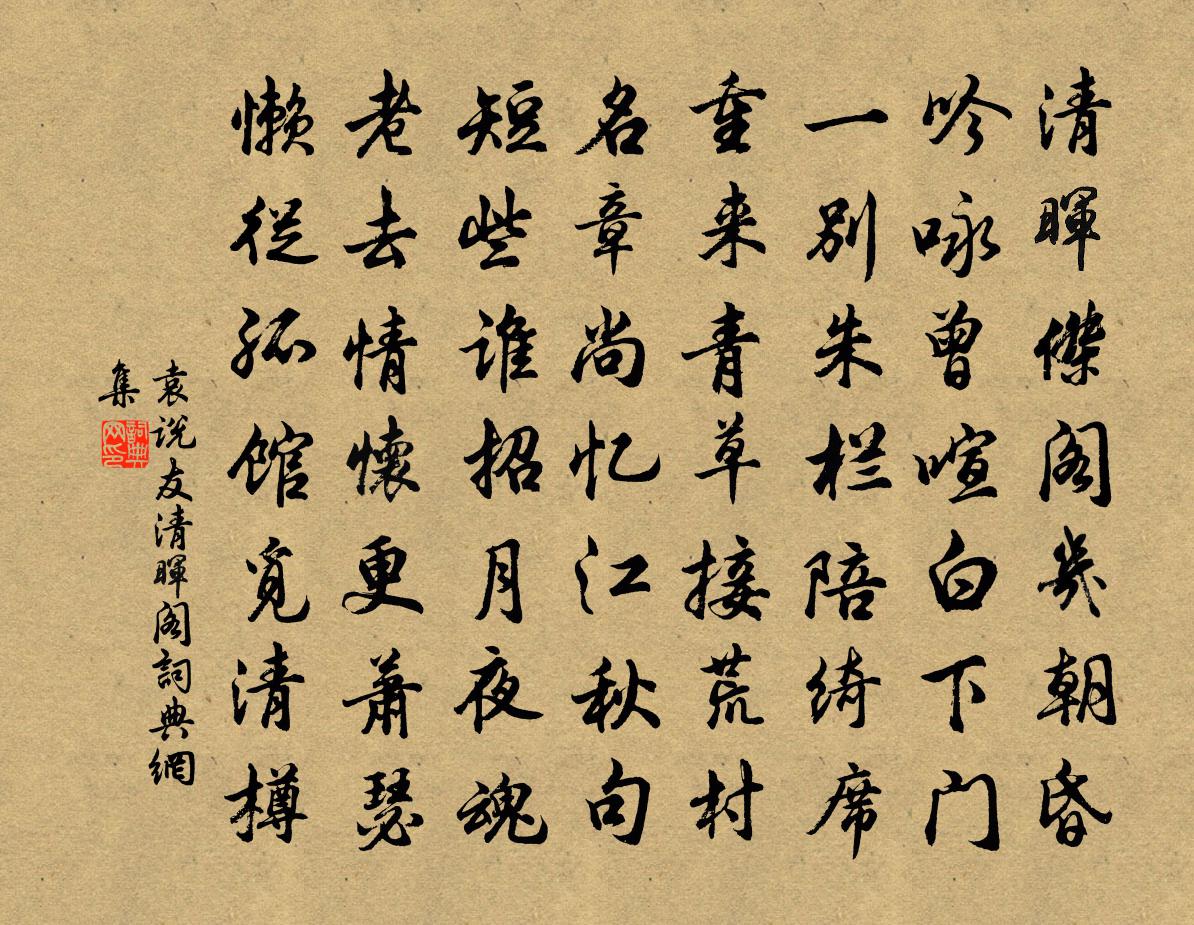 清暉傑阁幾朝昏
吟咏曾喧白下门
一别朱栏陪绮席
重来青草接荒村
名章尚忆江秋句
短些谁招月夜魂
老去情懷更萧瑟
懒从孤馆觅清樽
袁说友清暉阁詞典網
集
詞典
网印